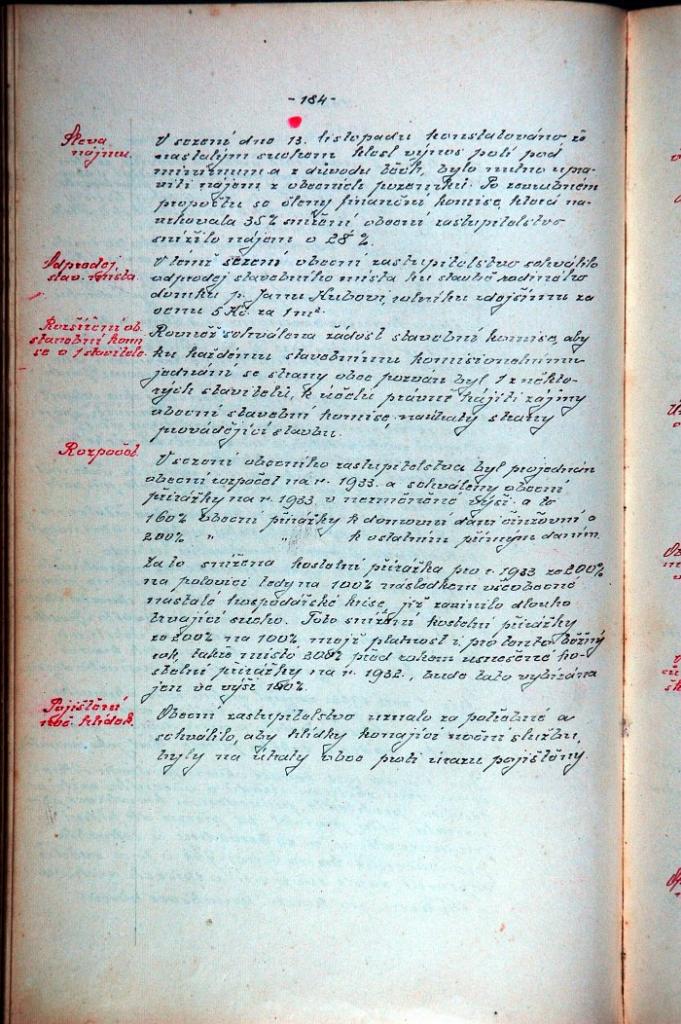 - 184 -
Sleva
nájmu.
V sezení dne 13. listopadu konstatováno že
nastalým suchem klesl výnos polí pod
minimum a z důvodu toho, bylo nutno upra-
viti nájem z obecních pozemků. Po
propočtu se členy finanční komise, která na-
vrhovala 35% snížení obecní zastupitelstvo
snížilo nájem o 28%.
Odprodej
stav. místa.
V témž sezení obecní zastupitelstvo schválilo
odprodej stavebního místa ku stavbě rodinného
domku p. Janu Kubovi, rolníku zdejšímu za
cenu 5 Kč. za 1 m².
Rozšíření ob.
stavební kom
se o 1 stavitele.
Rovněž schválena žádost stavební komise, aby
ku každému stavebnímu komisionelnímu
jednání se strany obce pozván byl 1 z někte-
rých stavitelů, k účelu právně hájiti zájmy
obecní stavební komise, strany
provádějící stavbu.
Rozpočet.
V sezení obecního zastupitelstva byl projednán
obecní rozpočet na r. 1933. a schváleny obecní
přirážky na r. 1933, v nezměněné výši a to
160% obecní přirážky k domovní dani činžovní a
200% " " k ostatním přímým daním.
Za to snížena kostelní přirážka pro r. 1933 ze 200%
na polovici tedy na 100% následkem všeobecně
nastalé hospodářské krise, jíž zavinilo dlouho
trvající sucho. Toto snížení kostelní přirážky
ze 200% na 100% mají platnost i pro tento běžný
rok, takže místo 200% před rokem usnesené ko-
stelní přirážky na r. 1932., bude tato vybírána
jen ve výši 100%.
Pojištění
noč. hlídek.
Obecní zastupitelstvo uznalo za potřebné a
schválilo, aby hlídky konající noční službu,
byly na útraty obce proti úrazu pojištěny